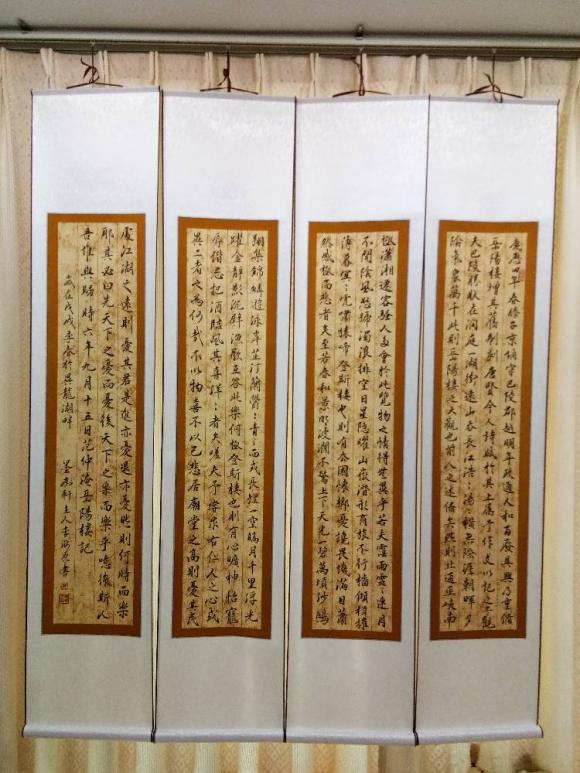 慶歷四年春滕子京謫守巴陵郡越明年政通人和百廢具興乃重脩
岳陽樓增其舊制刻唐賢今人詩賦於其上屬予作文以記之予觀
夫巴陵勝狀在洞庭一湖銜遠山吞長江浩〻湯〻橫無際涯朝暉夕
陰氣象萬千此則岳陽樓之大觀也前人之述備矣然則北通巫峽南
極瀟湘遷客騷人多會於此覽物之情得無異乎若夫霪雨霏〻連月
不開陰風怒號濁浪排空日星隱曜山嶽潛形商旅不行檣傾楫摧
薄暮冥〻虎嘯猿啼登斯樓也則有去國懷鄉憂讒畏譏滿目蕭
然感極而悲者矣至若春和景明波瀾不驚上下天光一碧萬頃沙鷗
翔集錦鱗游泳岸芷汀蘭鬱〻青〻而或長煙一空皓月千里浮光
躍金靜影沉璧漁歌互答此樂何極登斯樓也則有心曠神怡寵
辱偕忘把酒臨風其喜洋〻者矣嗟夫予嘗求古仁人之心或
異二者之為何哉不以物喜不以己悲居廟堂之高則憂其民
處江湖之遠則憂其君是進亦憂退亦憂然則何時而樂
耶其必曰先天下之憂而憂後天下之樂而樂乎噫微斯人
吾誰與歸時六年九月十五日范仲淹岳陽樓記
歲在戊戌孟春於昇龍湖畔
軒主人李海書